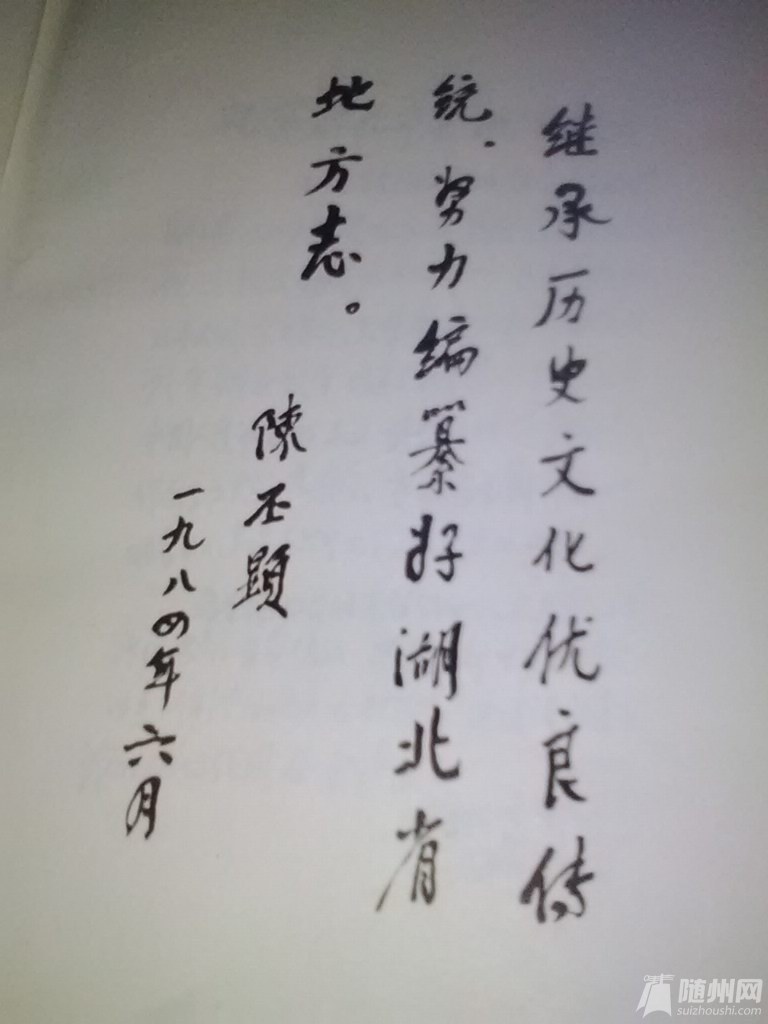 继承历史文化优良传
统、努力编纂好湖北省
地方志。
陳丕顯
一九八四年六月
随州网
suizhoushi.com